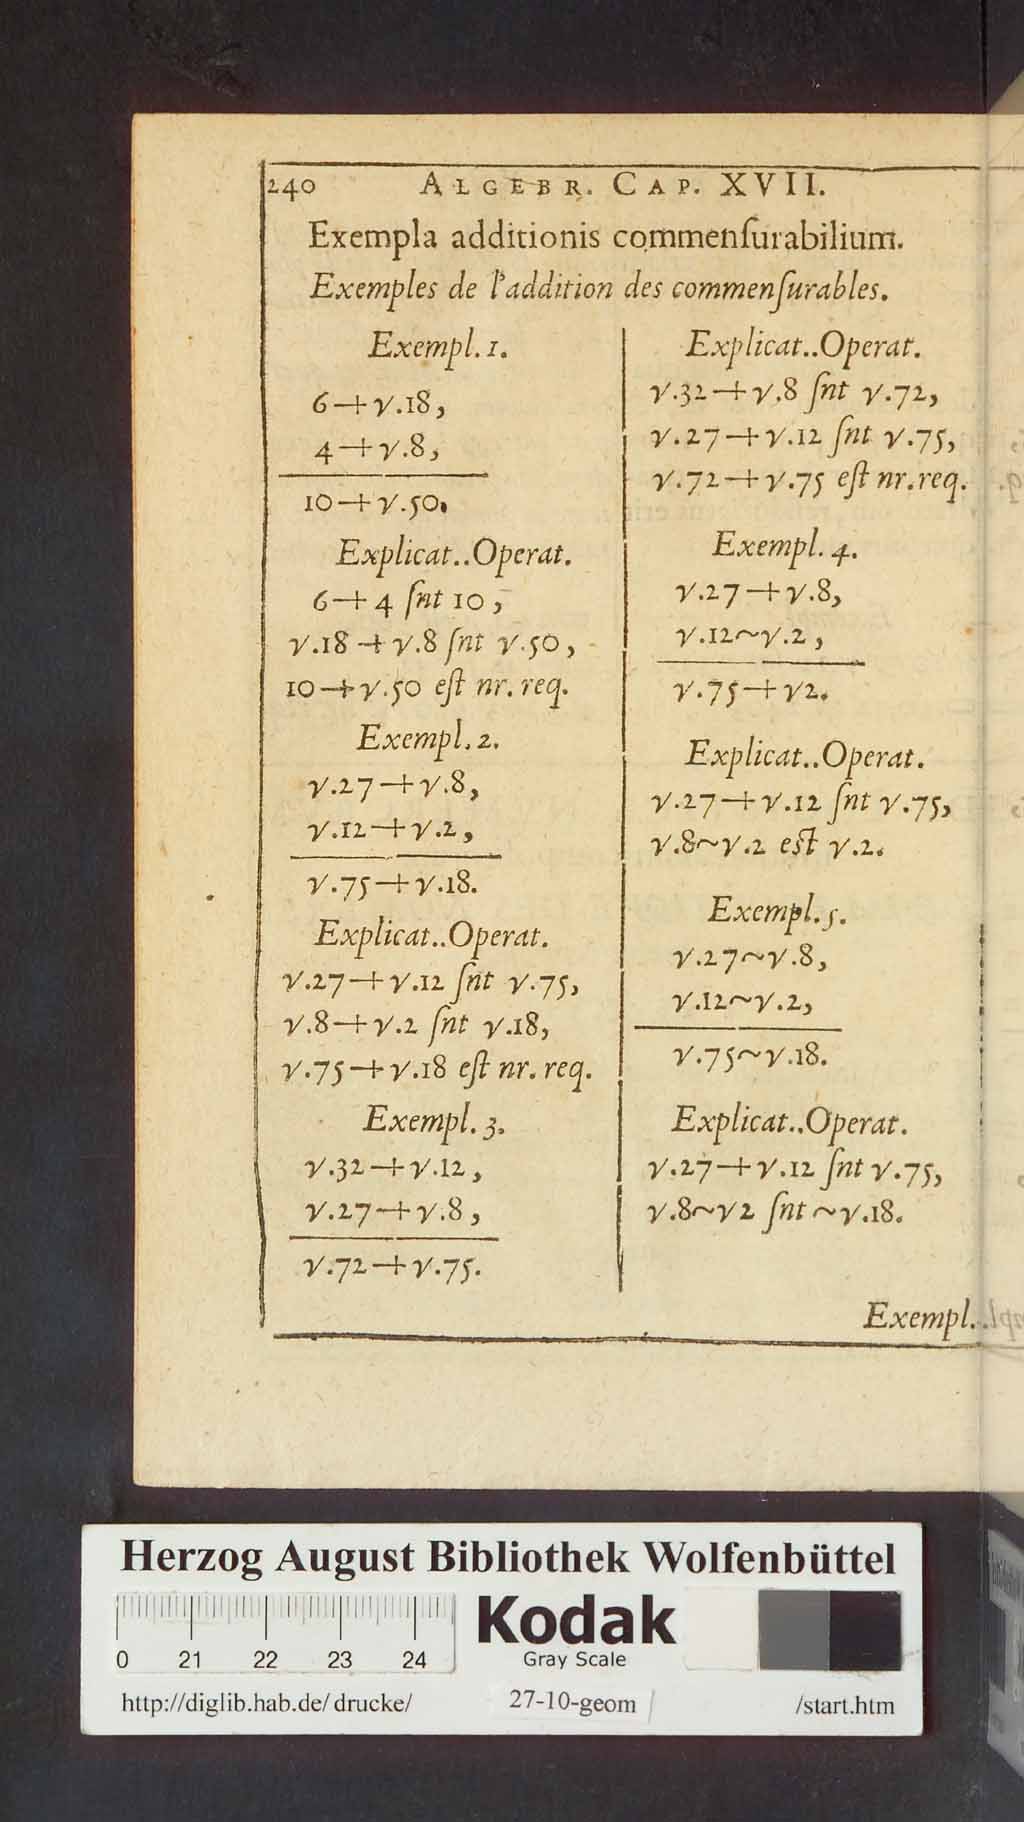 240 ALGEBR. CAP. XVII.
Exempla additionis commenſurabilium.
Exemples de l'addition des commenſurables.
Exempl. 1.
6+√.18,
4+√.8,
10+√.50.
Explicat..Operat.
6+4 ſnt 10,
√.18+√.8 ſnt √.50,
10+√.50 eſt nr. req.
Exempl. 2.
√.27+√.8,
√.12+√.2,
√.75+√.18.
Explicat..Operat.
√.27+√.12 ſnt √.75,
√.8+√.2 ſnt √.18,
√.75+√.18 eſt nr. req.
Exempl. 3.
√.32+√.12,
√.27+√.8,
√.72+√.75.
Explicat..Operat.
√.32+√.8 ſnt √.72,
√.27+√.12 ſnt √.75,
√.72+√.75 eſt nr. req.
Exempl. 4.
√.27+√.8,
√.12~√.2,
√.75+√2.
Explicat..Operat.
√.27+√.12 ſnt √.75,
√.8~√.2 est √.2.
Exempl. 5.
√.27~√.8,
√.12~√.2,
√.75~√.18.
Explicat..Operat.
√.27+√.12 ſnt √.75,
√.8~√2 ſnt ~√.18.
Exempl.
Herzog August Bibliothek Wolfenbüttel
Kodak
Gray Scale
0 21 22 23 24
http://diglib.hab.de/drucke/ 27-10-geom /start.htm